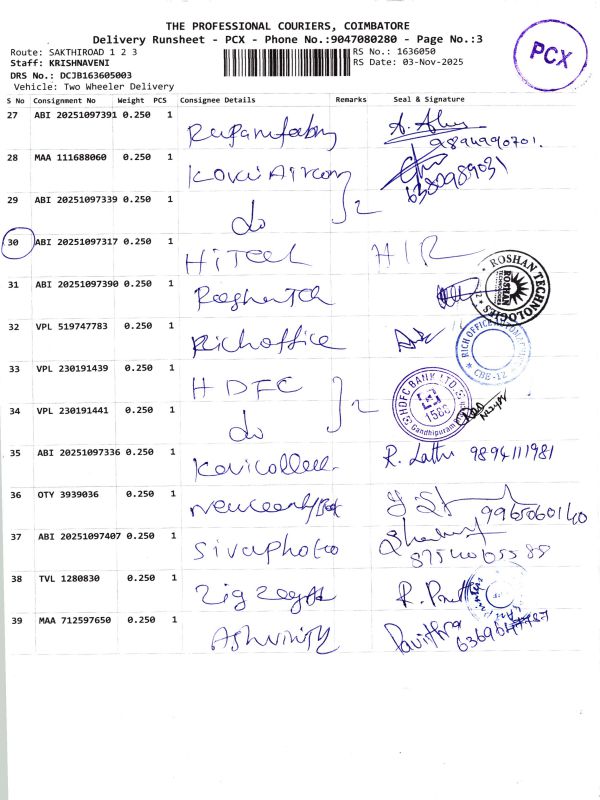 THE PROFESSIONAL COURIERS, COIMBATORE
Delivery Runsheet - PCX - Phone No.:9047080280 - Page No.:3
Route: SAKTHIROAD 1 2 3
RS No.: 1636050
Staff: KRISHNAVENI
RS Date: 03-Nov-2025
DRS No.: DCJB163605003
Vehicle: Two Wheeler Delivery
PCX
S No Consignment No Weight PCS Consignee Details Remarks Seal & Signature
27 ABI 20251097391 0.250 1
9894990701.
28 MAA 111688060 0.250 1
6380989031
29 ABI 20251097339 0.250 1 do 2
30 ABI 20251097317 0.250 1 HiTech HIR
31 ABI 20251097390 0.250 1
ROSHAN TECHNOLOGIES
ROSHAN TECHNOLOGIES
32 VPL 519747783 0.250 1 Rich office
RICH OFFICE AUTOMATION
CBE-12
33 VPL 230191439 0.250 1 HDFC
34 VPL 230191441 0.250 1 do 2
HDFC BANK LTD.
1588
Gandhipuram
35 ABI 20251097336 0.250 1 R. Latha 9894111981
36 OTY 3939036 0.250 1 9965060140
37 ABI 20251097407 0.250 1 Sivaphoto
38 TVL 1280830 0.250 1
39 MAA 712597650 0.250 1 Pavithra